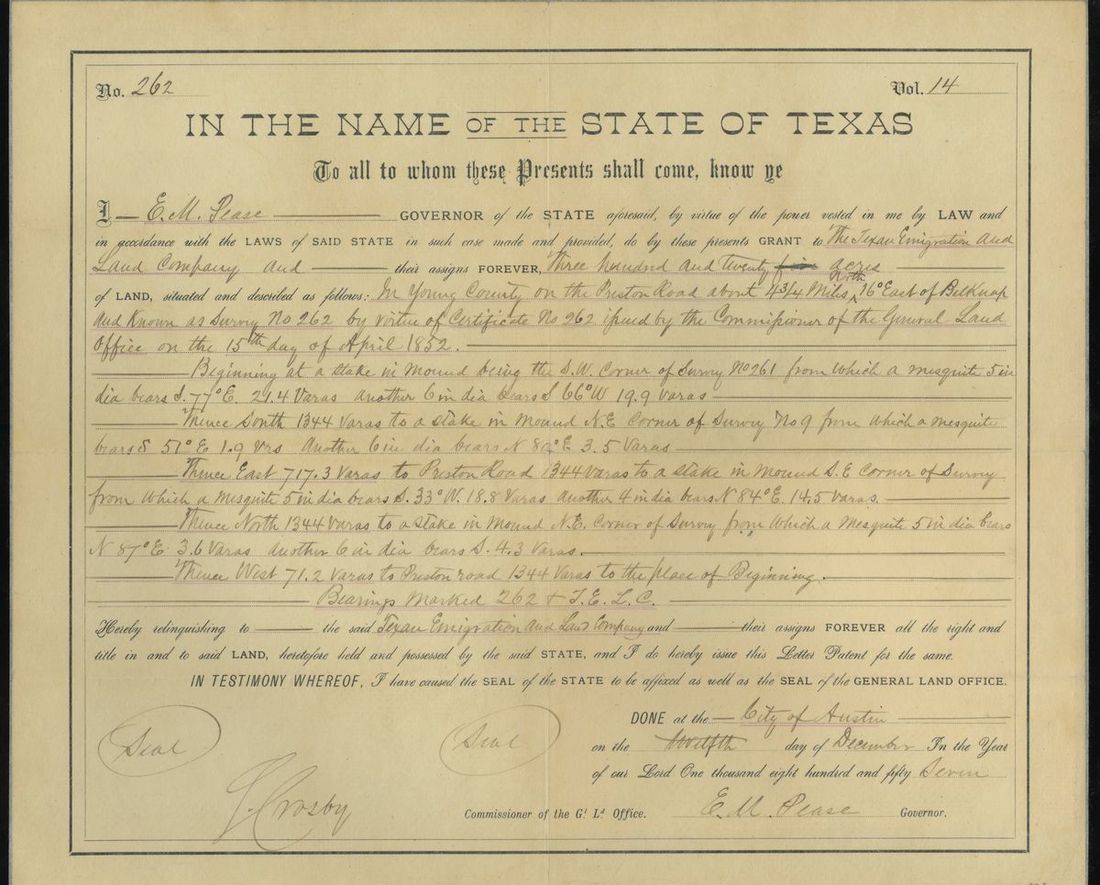 No. 262 Vol. 14
IN THE NAME OF THE STATE OF TEXAS
To all to whom these Presents shall come, know ye
I E. M. Pease GOVERNOR of the STATE aforesaid, by virtue of the power vested in me by LAW and
in accordance with the LAWS of SAID STATE in such case made and provided, do by these presents GRANT to The Texan Emigration and
Land Company and their assigns FOREVER, Three hundred and twenty acres
of LAND, situated and described as follows: In Young County on the Preston Road about 4 3/4 Miles North 16° East of Belknap
and Known as Survey No 262 by virtue of Certificate No 262 issued by the Commissioner of the General Land
Office on the 15th day of April 1852.
Beginning at a stake in Mound being the S.W. Corner of Survey No 261 from which a mesquite 5 in
dia bears S. 77° E. 21.4 Varas another 6 in dia bears S 66° W 19.9 varas
Thence South 1344 varas to a stake in mound N.E Corner of Survey No 9 from which a mesquite
bears S 51° E 1.9 vrs Another 6 in dia bears N 80° E 3.5 Varas
Thence East 717.3 varas to Preston Road 1344 varas to a stake in mound S.E Corner of Survey
from which a Mesquite 5 in dia bears S. 33° W. 18.8 Varas another 4 in dia bears N 84° E. 14.5 varas.
Thence North 1344 varas to a stake in Mound N.E. Corner of Survey from which a Mesquite 5 in dia bears
N 87° E. 3.6 Varas another 6 in dia bears S. 4.3 Varas.
Thence West 71.2 varas to Preston road 1344 varas to the place of Beginning.
Bearings Marked 262 & T. E. L. C.
Hereby relinquishing to the said Texan Emigration and Land Company and their assigns FOREVER all the right and
title in and to said LAND, heretofore held and possessed by the said STATE, and I do hereby issue this Letter Patent for the same.
IN TESTIMONY WHEREOF, I have caused the SEAL of the STATE to be affixed as well as the SEAL of the GENERAL LAND OFFICE.
DONE at the City of Austin
Seal Seal on the twelfth day of December In the Year
of our Lord One thousand eight hundred and fifty Seven
S. Crosby Commissioner of the Gl. Ld. Office. E. M. Pease Governor.